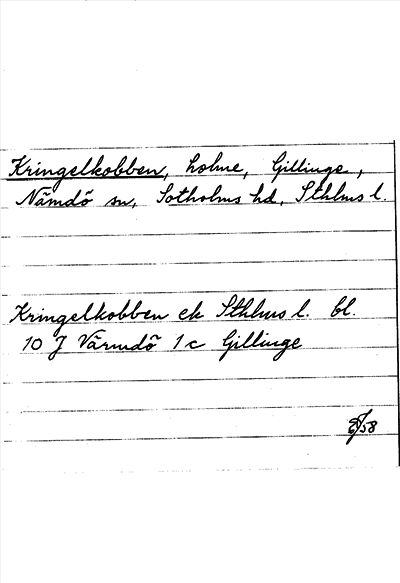 Kringelkobben, holme, Gillinge,
Nämdö sn, Sotholms hd, Sthlms l.
Kringelkobben ek Sthlms l. bl.
10 J Värmdö 1 c Gillinge